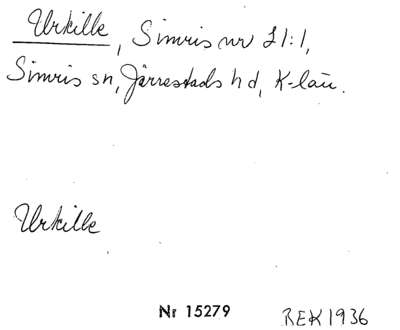 Urkille, Simris nr 21:1,
Simris sn, Järrestads hd, K-län.
Urkille
Nr 15279 REK 1936